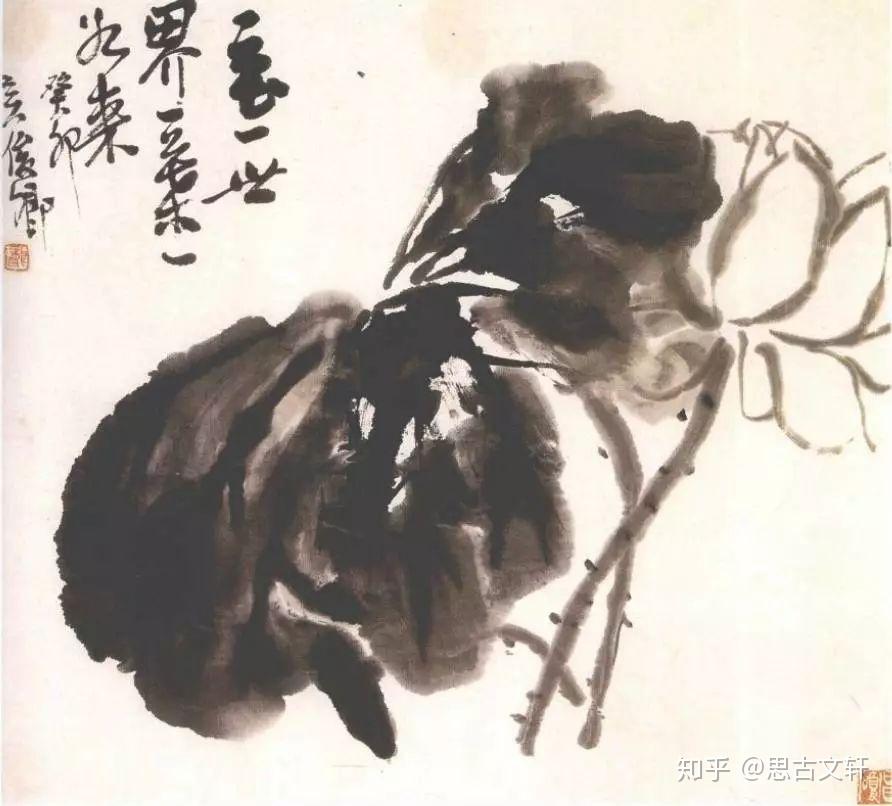 一花一世
界一葉一
如來
癸卯
吴俊卿
知乎 @思古文轩